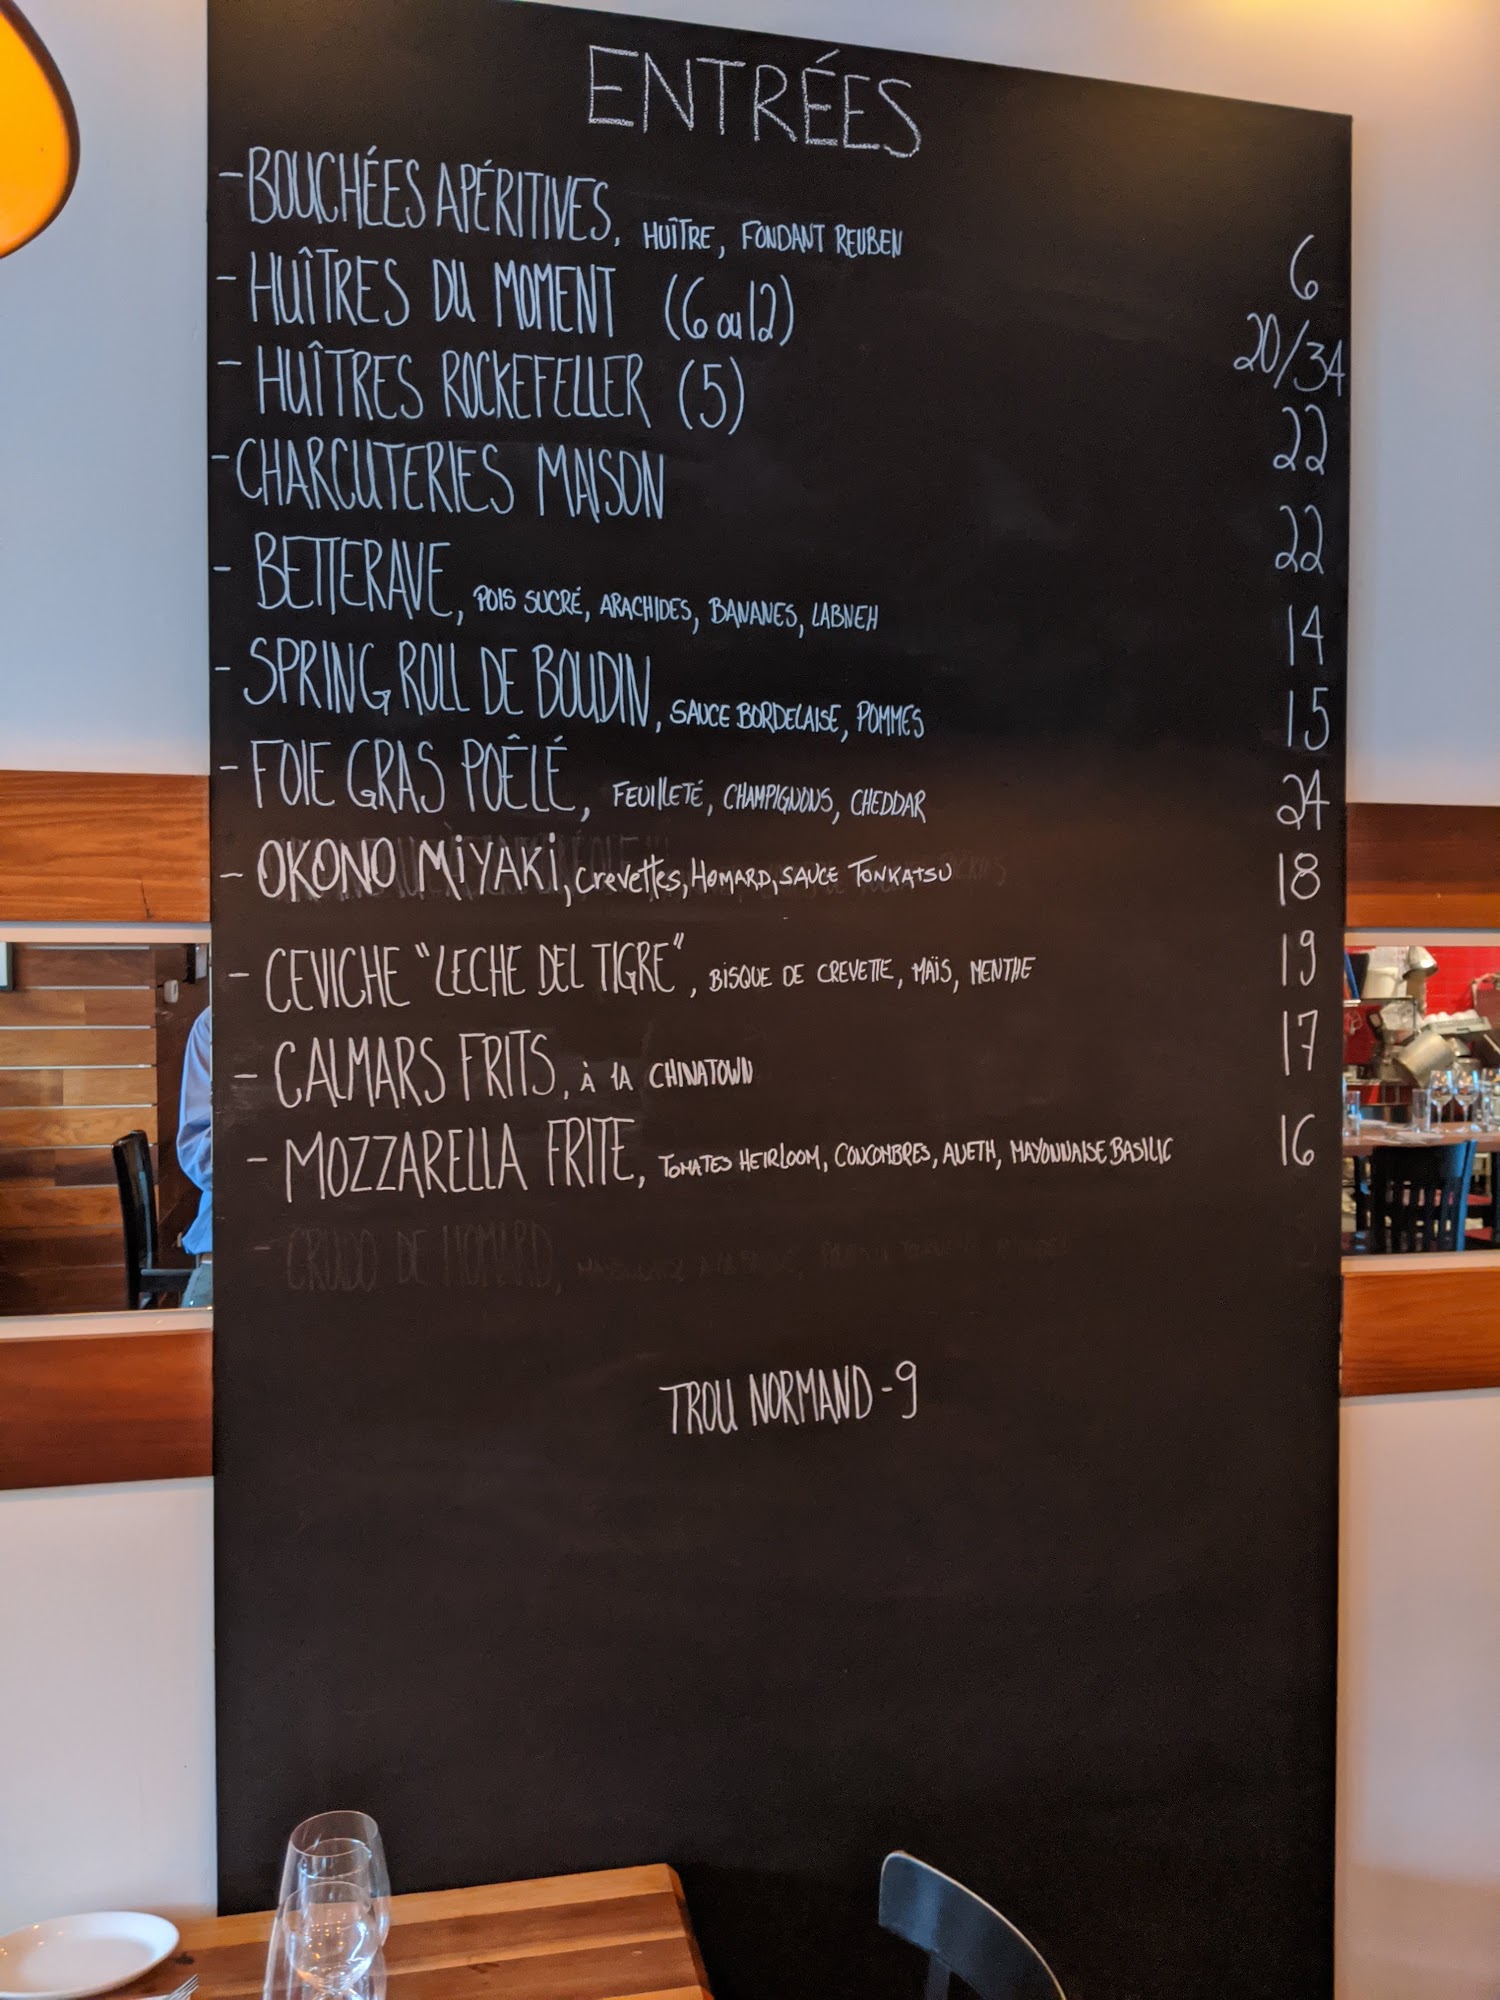 ENTRÉES
- BOUCHÉES APÉRITIVES, HUÎTRE, FONDANT REUBEN 6
- HUÎTRES DU MOMENT (6 ou 12) 20/34
- HUÎTRES ROCKEFELLER (5) 22
- CHARCUTERIES MAISON 22
- BETTERAVE, POIS SUCRÉ, ARACHIDES, BANANES, LABNEH 14
- SPRING ROLL DE BOUDIN, SAUCE BORDELAISE, POMMES 15
- FOIE GRAS POÊLÉ, FEUILLETÉ, CHAMPIGNONS, CHEDDAR 24
- OKONO MiYAKi, Crevettes, HOMARD, SAUCE TONKATSU 18
- CEVICHE "LECHE DEL TIGRE", BISQUE DE CREVETTE, MAÏS, MENTHE 19
- CALMARS FRITS, À LA CHINATOWN 17
- MOZZARELLA FRITE, TOMATES HEIRLOOM, CONCOMBRES, ANETH, MAYONNAISE BASILIC 16
- CRUDO DE HOMARD,
TROU NORMAND - 9